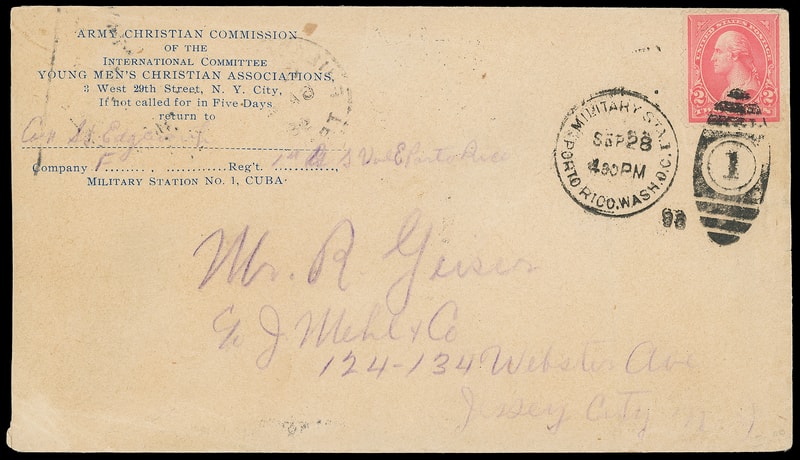 ARMY CHRISTIAN COMMISSION
OF THE
INTERNATIONAL COMMITTEE
YOUNG MEN'S CHRISTIAN ASSOCIATIONS,
3 West 29th Street, N. Y. City,
If not called for in Five Days
return to
Company F Reg't. 1st U S Vol E Porto Rico
MILITARY STATION No. 1, CUBA
UNITED STATES POSTAGE
2 2
MILITARY STA. 1
SEP 28
4 30 PM
PORTO RICO, WASH. D.C.
1
98
Mr. R. Geiser
c/o J Mehl & Co
124-134 Webster Ave
Jersey City N J